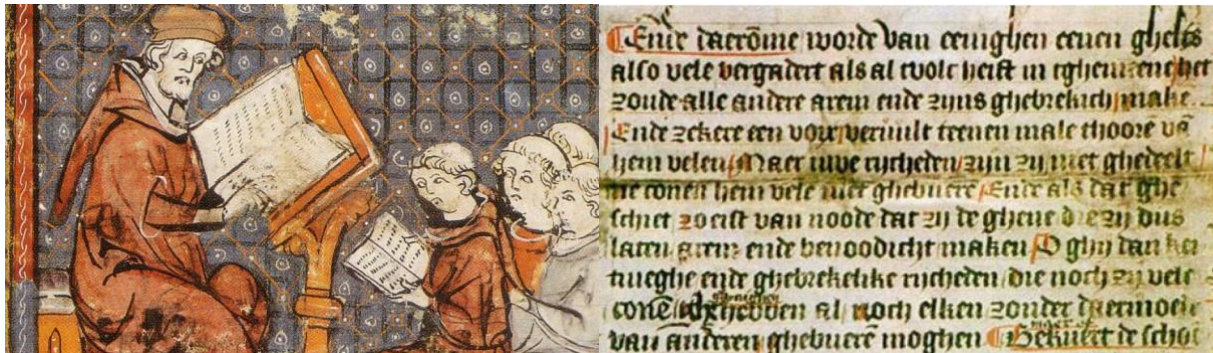 Ende daerome worde van eenighen eenen
also vele vergadert als al tvolc heift in
zoude alle andere arem ende zijns ghebrekich make
Ende zekere een voix vervult teenen male thoore vā
hem velen / Maer uwe rycheden / zijn zij niet ghedeelt
ne conen hem vele niet ghebuerē / Ende als dat ghe
schiet zo eist van noode dat zij de ghene die zij dus
laten arem ende benoodicht maken / O ghij dan kei
tiueghe ende ghebrekelike rycheden / die noch zij vele
conē hebben al / noch elken zonder
van anderen ghebuerē moghen de